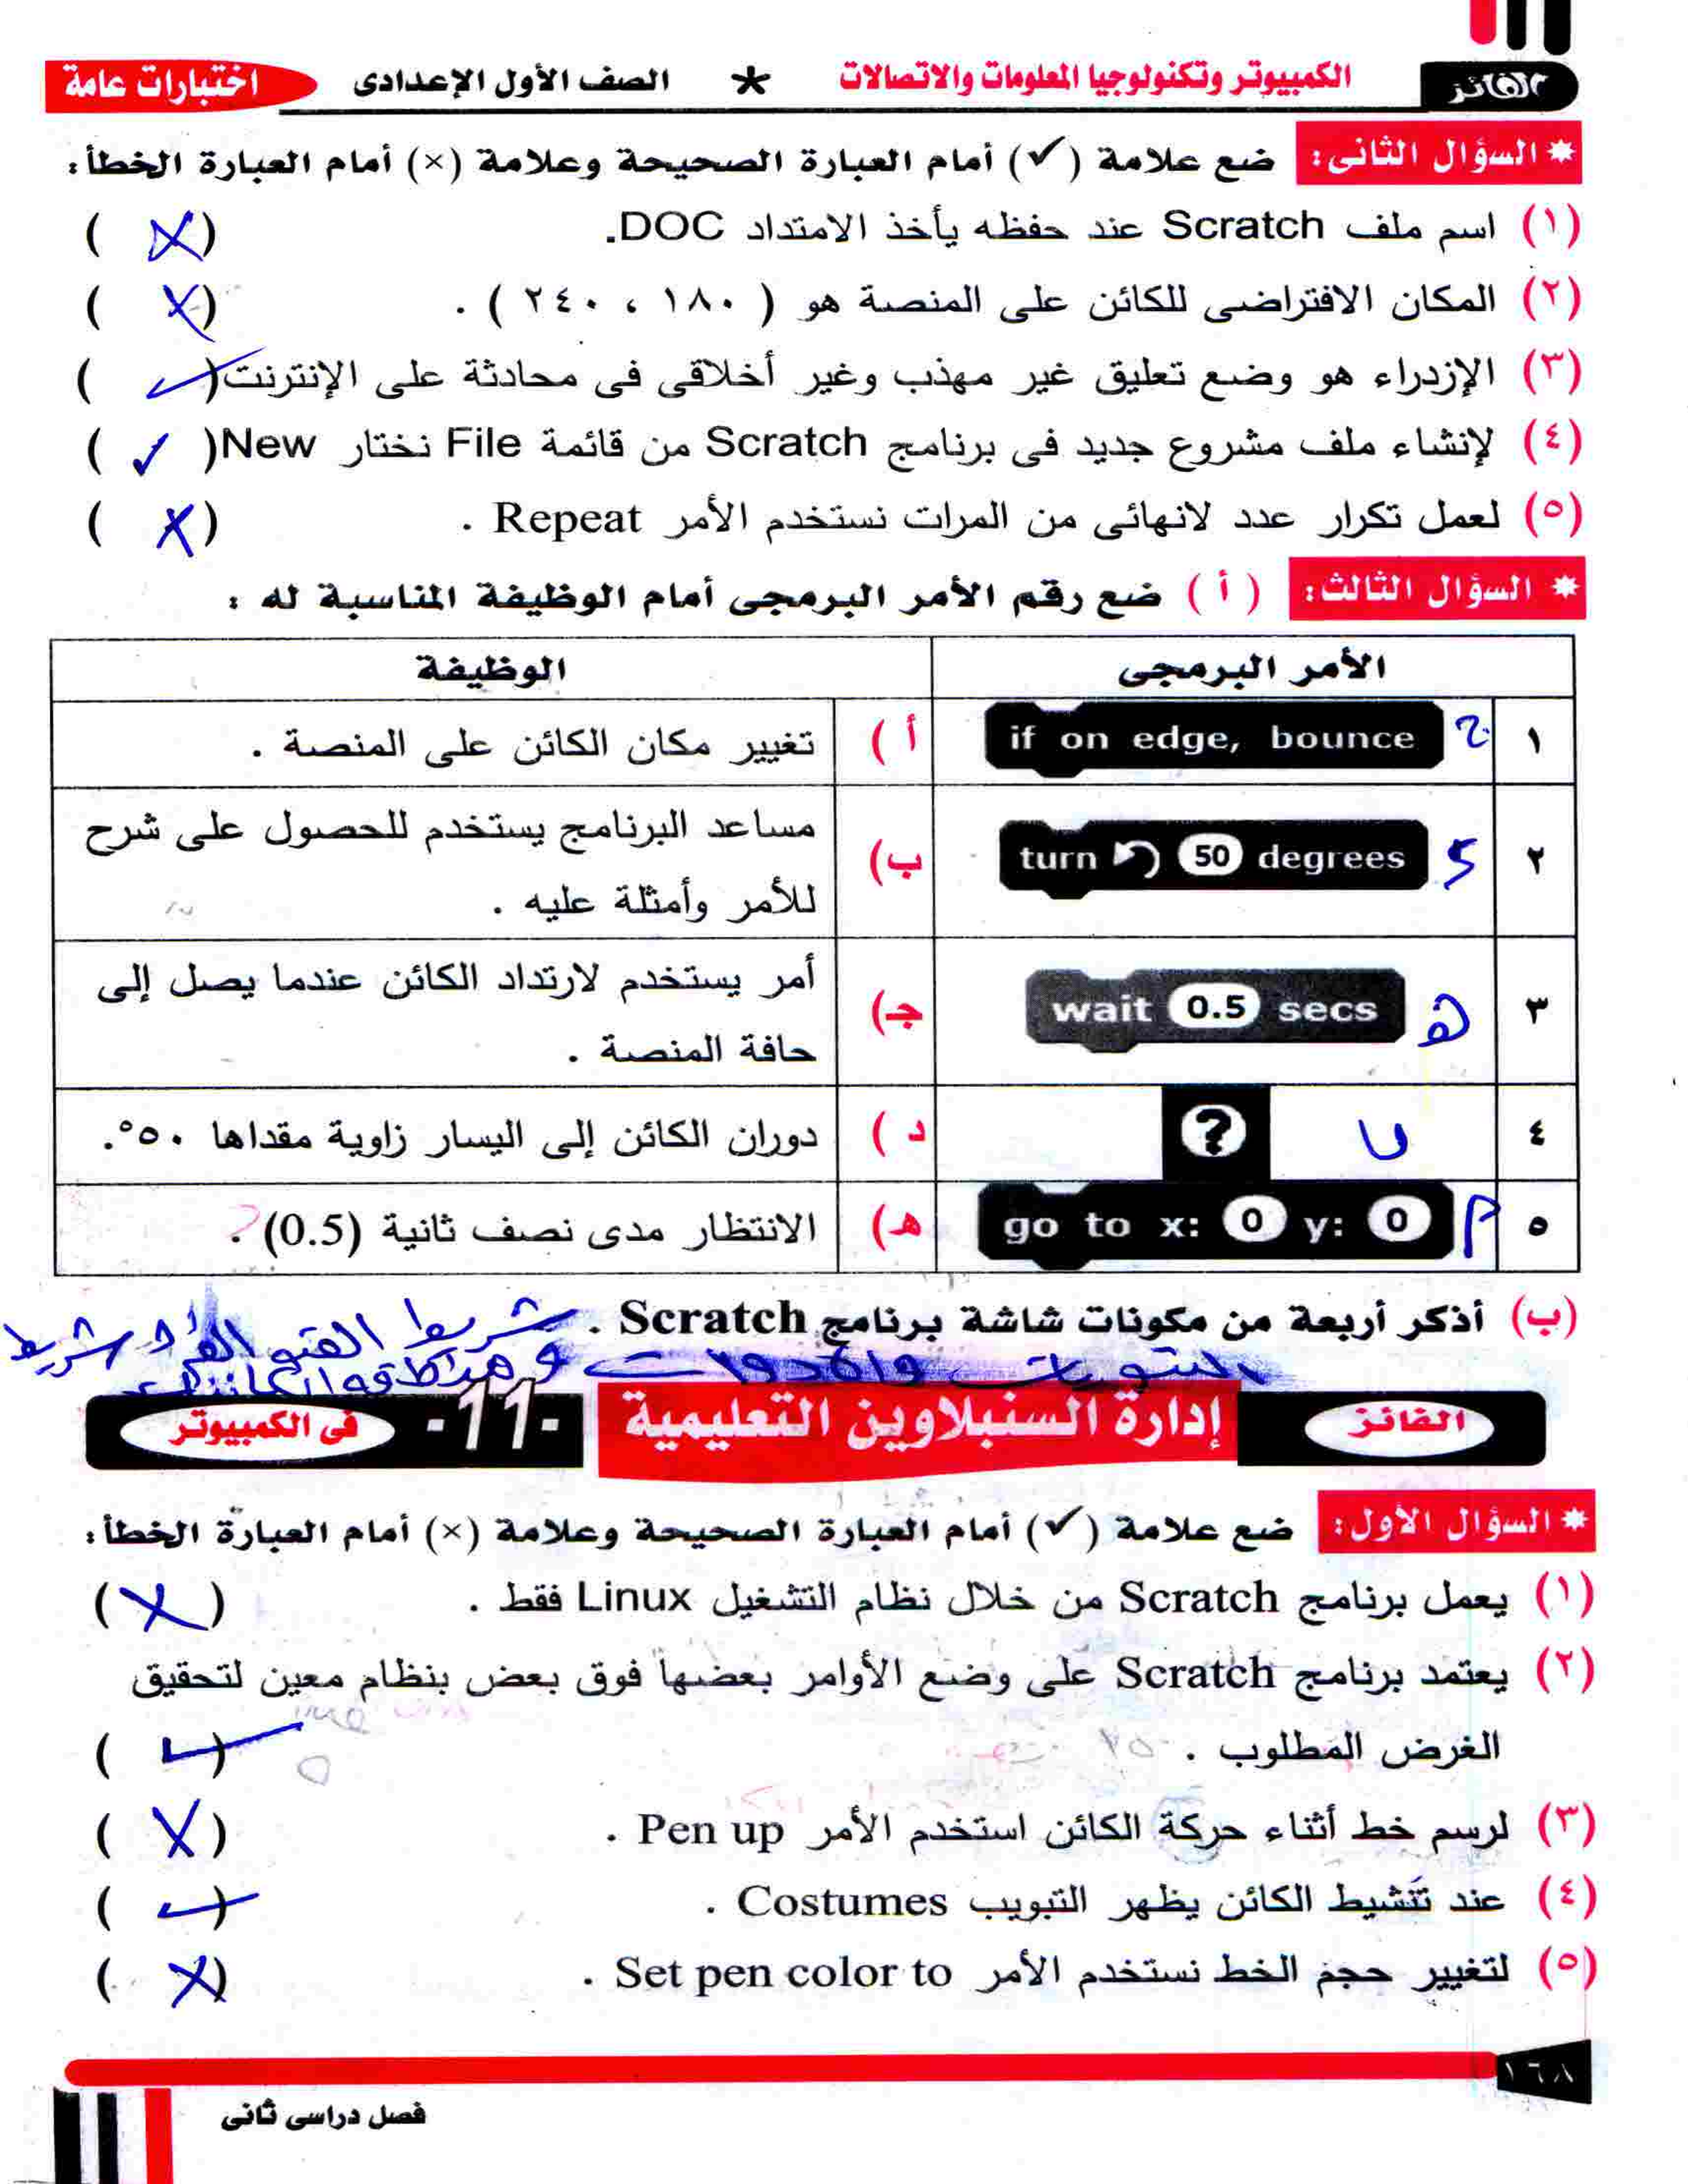 الفائز
الكمبيوتر وتكنولوجيا المعلومات والاتصالات * الصف الأول الإعدادى
اختبارات عامة
* السؤال الثانى: ضع علامة (✓) أمام العبارة الصحيحة وعلامة (×) أمام العبارة الخطأ:
(١) اسم ملف Scratch عند حفظه يأخذ الامتداد DOC. (X)
(٢) المكان الافتراضى للكائن على المنصة هو ( ١٨٠ ، ٢٤٠ ) . (X)
(٣) الإزدراء هو وضع تعليق غير مهذب وغير أخلاقى فى محادثة على الإنترنت (✓)
(٤) لإنشاء ملف مشروع جديد فى برنامج Scratch من قائمة File نختار New (✓)
(٥) لعمل تكرار عدد لانهائى من المرات نستخدم الأمر Repeat . (X)
* السؤال الثالث: ( أ ) ضع رقم الأمر البرمجى أمام الوظيفة المناسبة له :
الأمر البرمجى الوظيفة
١ if on edge, bounce أ ) تغيير مكان الكائن على المنصة .
٢ turn 50 degrees ب) مساعد البرنامج يستخدم للحصول على شرح
للأمر وأمثلة عليه .
٣ wait 0.5 secs هـ جـ) أمر يستخدم لارتداد الكائن عندما يصل إلى
حافة المنصة .
٤ ? ب د ) دوران الكائن إلى اليسار زاوية مقداها ٥٠°.
٥ go to x: 0 y: 0 أ هـ) الانتظار مدى نصف ثانية (0.5) .
(ب) أذكر أربعة من مكونات شاشة برنامج Scratch . شريط
شريط
التبويبات والأدوات و
الفائز
إدارة السنبلاوين التعليمية
-11-
فى الكمبيوتر
* السؤال الأول: ضع علامة (✓) أمام العبارة الصحيحة وعلامة (×) أمام العبارة الخطأ:
(١) يعمل برنامج Scratch من خلال نظام التشغيل Linux فقط . (X)
(٢) يعتمد برنامج Scratch على وضع الأوامر بعضها فوق بعض بنظام معين لتحقيق
الغرض المطلوب . (✓)
(٣) لرسم خط أثناء حركة الكائن استخدم الأمر Pen up . (X)
(٤) عند تنشيط الكائن يظهر التبويب Costumes . (✓)
(٥) لتغيير حجم الخط نستخدم الأمر Set pen color to . (X)
١٦٨
فصل دراسى ثانى